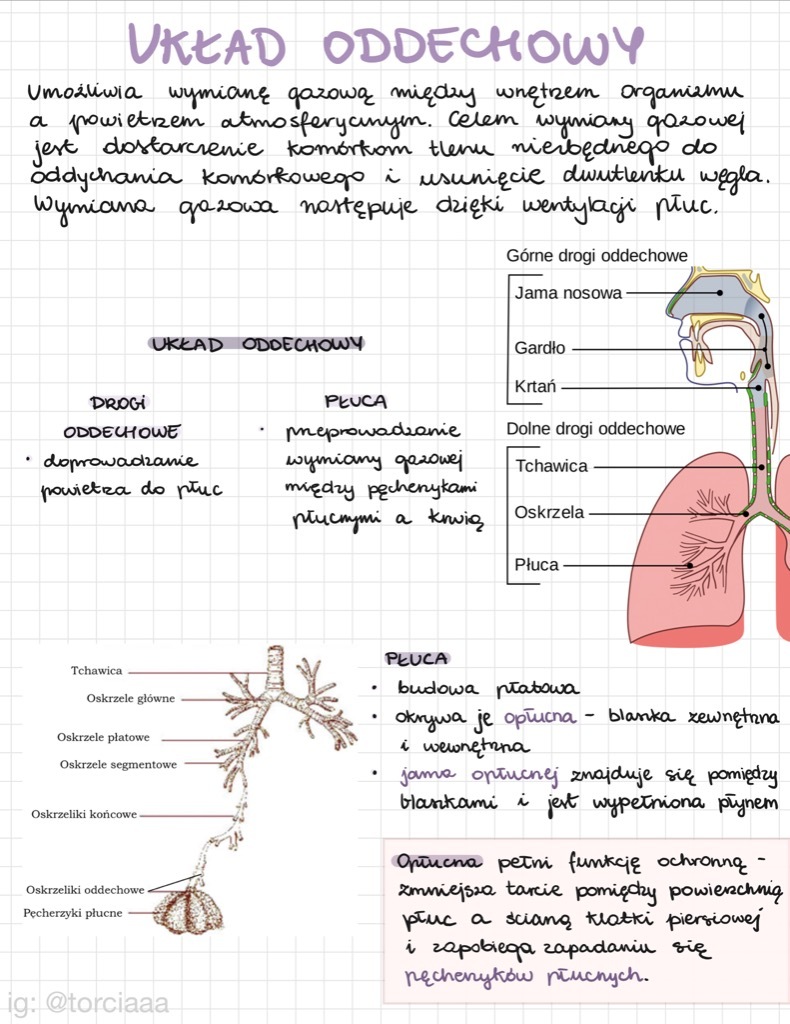 UKŁAD ODDECHOWY
Umożliwia wymianę gazową między wnętrzem organizmu
a powietrzem atmosferycznym. Celem wymiany gazowej
jest dostarczenie komórkom tlenu niezbędnego do
oddychania komórkowego i usunięcie dwutlenku węgla.
Wymiana gazowa następuje dzięki wentylacji płuc.
UKŁAD ODDECHOWY
DROGI
ODDECHOWE
• doprowadzanie
powietrza do płuc
PŁUCA
• przeprowadzanie
wymiany gazowej
między pęcherzykami
płucnymi a krwią
Górne drogi oddechowe
Jama nosowa
Gardło
Krtań
Dolne drogi oddechowe
Tchawica
Oskrzela
Płuca
Tchawica
Oskrzele główne
Oskrzele płatowe
Oskrzele segmentowe
Oskrzeliki końcowe
Oskrzeliki oddechowe
Pęcherzyki płucne
PŁUCA
• budowa płatowa
• okrywa je opłucna - blaszka zewnętrzna
i wewnętrzna
• jama opłucnej znajduje się pomiędzy
blaszkami i jest wypełniona płynem
Opłucna pełni funkcję ochronną -
zmniejsza tarcie pomiędzy powierzchnią
płuc a ścianą klatki piersiowej
i zapobiega zapadaniu się
pęcherzyków płucnych.
ig: @torciaaa